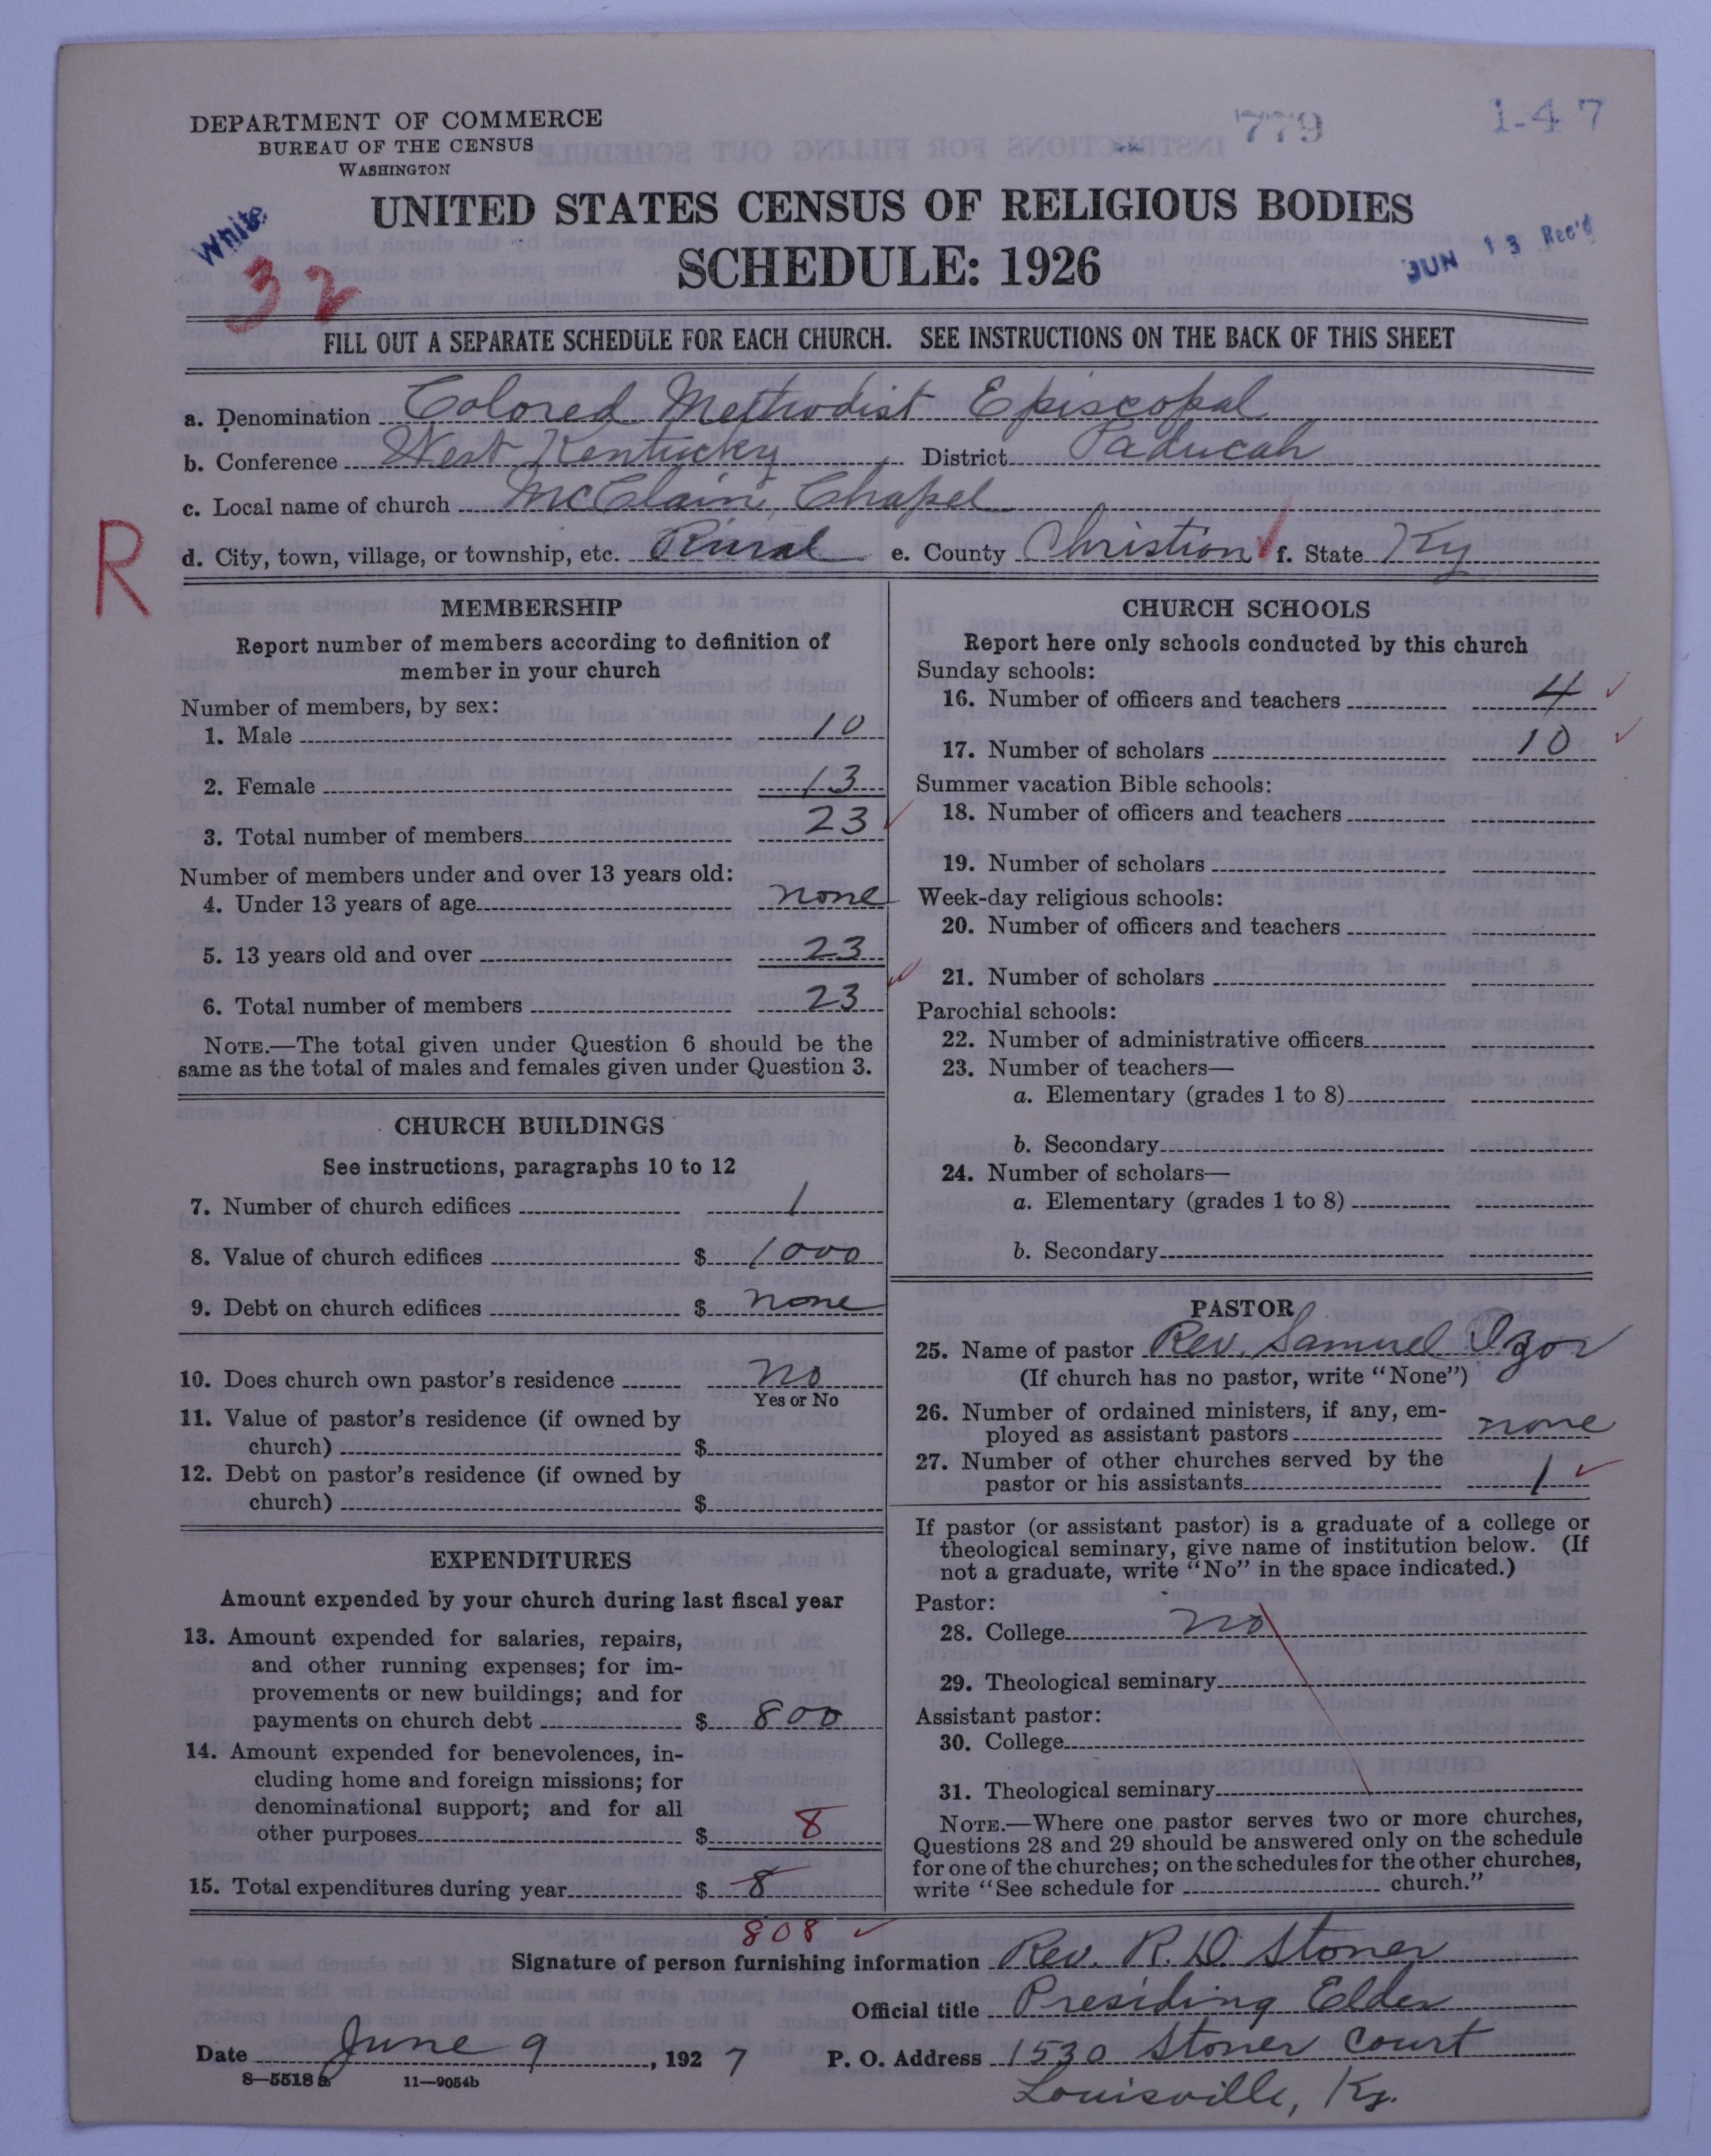 DEPARTMENT OF COMMERCE
BUREAU OF THE CENSUS
WASHINGTON
779
1-47
UNITED STATES CENSUS OF RELIGIOUS BODIES
SCHEDULE: 1926
White
32
JUN 13 Rec'd
FILL OUT A SEPARATE SCHEDULE FOR EACH CHURCH. SEE INSTRUCTIONS ON THE BACK OF THIS SHEET
a. Denomination Colored Methodist Episcopal
b. Conference West Kentucky District Paducah
c. Local name of church McClain Chapel
R
d. City, town, village, or township, etc. Rural e. County Christion f. State Ky
MEMBERSHIP
Report number of members according to definition of
member in your church
Number of members, by sex:
1. Male 10
2. Female 13
3. Total number of members 23
Number of members under and over 13 years old:
4. Under 13 years of age none
5. 13 years old and over 23
6. Total number of members 23
NOTE.—The total given under Question 6 should be the
same as the total of males and females given under Question 3.
CHURCH BUILDINGS
See instructions, paragraphs 10 to 12
7. Number of church edifices 1
8. Value of church edifices $ 1000
9. Debt on church edifices $ none
10. Does church own pastor's residence no
Yes or No
11. Value of pastor's residence (if owned by
church) $
12. Debt on pastor's residence (if owned by
church) $
EXPENDITURES
Amount expended by your church during last fiscal year
13. Amount expended for salaries, repairs,
and other running expenses; for im-
provements or new buildings; and for
payments on church debt $ 800
14. Amount expended for benevolences, in-
cluding home and foreign missions; for
denominational support; and for all
other purposes $ 8
15. Total expenditures during year $ 8
808
CHURCH SCHOOLS
Report here only schools conducted by this church
Sunday schools:
16. Number of officers and teachers 4
17. Number of scholars 10
Summer vacation Bible schools:
18. Number of officers and teachers
19. Number of scholars
Week-day religious schools:
20. Number of officers and teachers
21. Number of scholars
Parochial schools:
22. Number of administrative officers
23. Number of teachers—
a. Elementary (grades 1 to 8)
b. Secondary
24. Number of scholars—
a. Elementary (grades 1 to 8)
b. Secondary
PASTOR
25. Name of pastor Rev. Samuel
(If church has no pastor, write "None")
26. Number of ordained ministers, if any, em-
ployed as assistant pastors none
27. Number of other churches served by the
pastor or his assistants 1
If pastor (or assistant pastor) is a graduate of a college or
theological seminary, give name of institution below. (If
not a graduate, write "No" in the space indicated.)
Pastor:
28. College no
29. Theological seminary
Assistant pastor:
30. College
31. Theological seminary
NOTE.—Where one pastor serves two or more churches,
Questions 28 and 29 should be answered only on the schedule
for one of the churches; on the schedules for the other churches,
write "See schedule for church."
Signature of person furnishing information Rev. R. D. Stoner
Official title Presiding Elder
Date June 9, 1927 P. O. Address 1530 Stoner Court
8—5518a 11—9054b
Louisville, Ky.